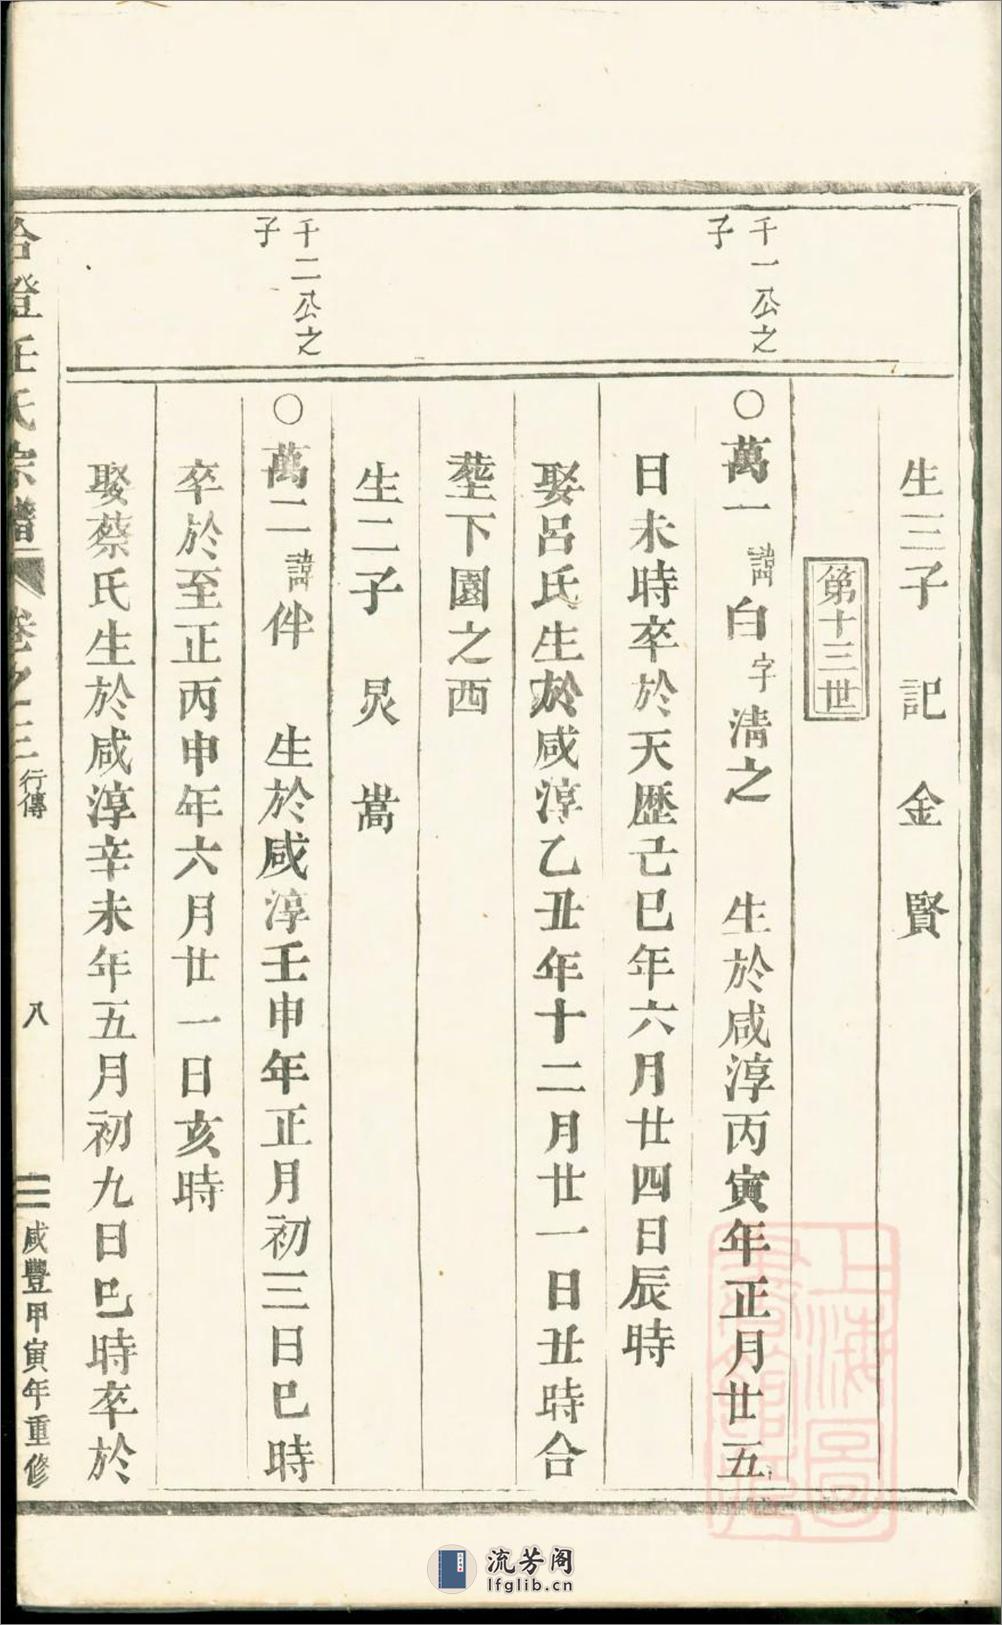 生三子　記　金　賢
第十三世
千一公之
子
○萬一諱白字淸之　生於咸淳丙寅年正月廿五
日未時卒於天歷己巳年六月廿四日辰時
娶呂氏生於咸淳乙丑年十二月廿一日丑時合
塟下園之西
生二子　炅　嵩
千二公之
子
○萬二諱伴　生於咸淳壬申年正月初三日巳時
卒於至正丙申年六月廿一日亥時
娶蔡氏生於咸淳辛未年五月初九日巳時卒於
任氏宗譜　卷之三　行傳　八　咸豐甲寅年重修
上海圖書館藏
流芳阁
lfglib.cn